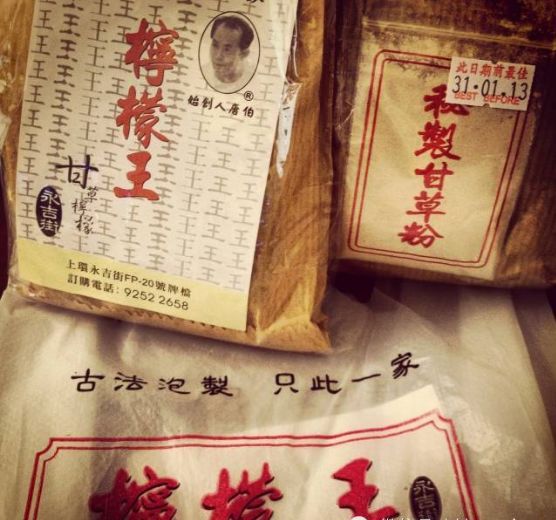 檸檬王
®
始創人唐伯
甘草檸檬
永吉街
上環永吉街FP-20號牌檔
訂購電話: 9252 2658
此日期前最佳
31·01.13
BEST BEFORE
秘製甘草粉
古法泡製 只此一家
檸檬王
永吉街